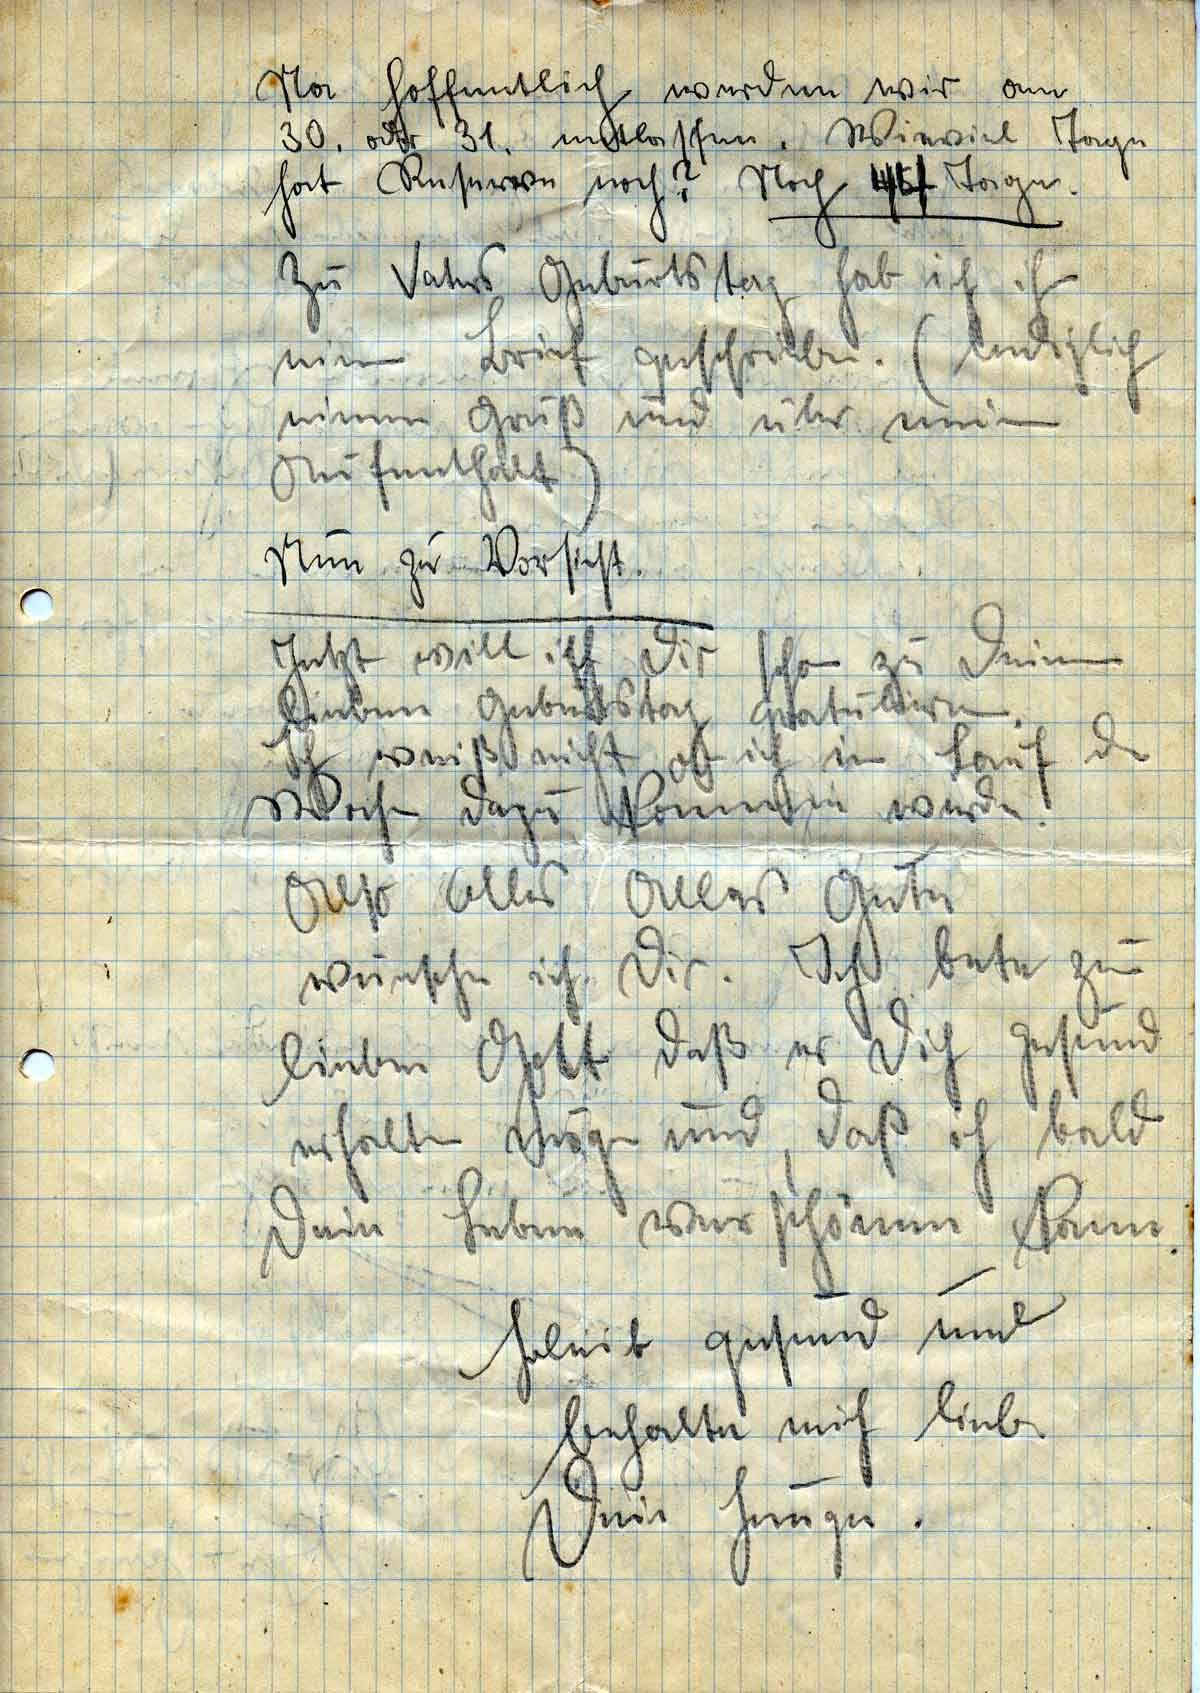 Na hoffentlich werden wir am
30. oder 31. entlassen. Wieviel Tage
hat Reserve noch? Noch 45 Tage.
Zu Vaters Geburtstag hab ich ih
ein Brief geschrieben. (lediglich
einen Gruß und über mein
Aufenthalt)
Nun zur Vorsicht.
Jetzt will ich Dir schon zu Deinem
lieben Geburtstag gratulieren.
Ich weiß nicht ob ich im Lauf der
Woche dazu kommen werde.
Also Alles Alles Gute
wünsche ich Dir. Ich bete zum
lieben Gott daß er Dich gesund
erhalten möge und, daß ich bald
Dein Leben verschönern kann.
bleib gesund und
behalte mich lieb
Dein